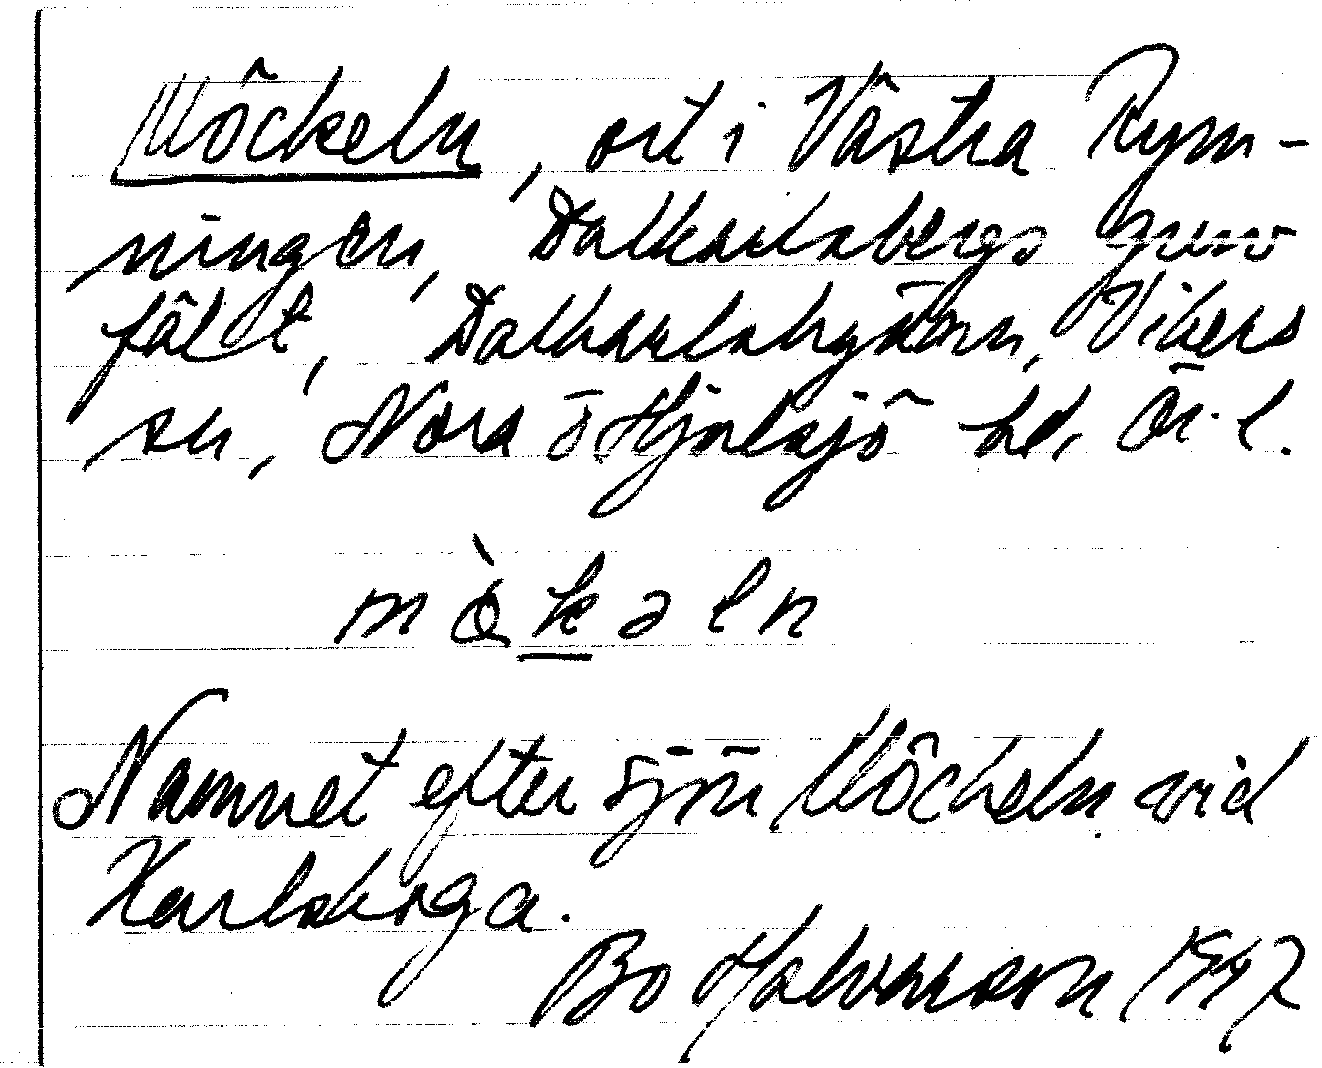 Möckeln, ort i Västra Rym-
ningen, Dalkarlsbergs gruv
fält, Dalkarlshyttan, Vikers
sn, Nora o Hjulsjö hd, Ör. l.
mòkəln
Namnet efter sjön Möckeln vid
Karlskoga.
Bo Halvarsson 1947